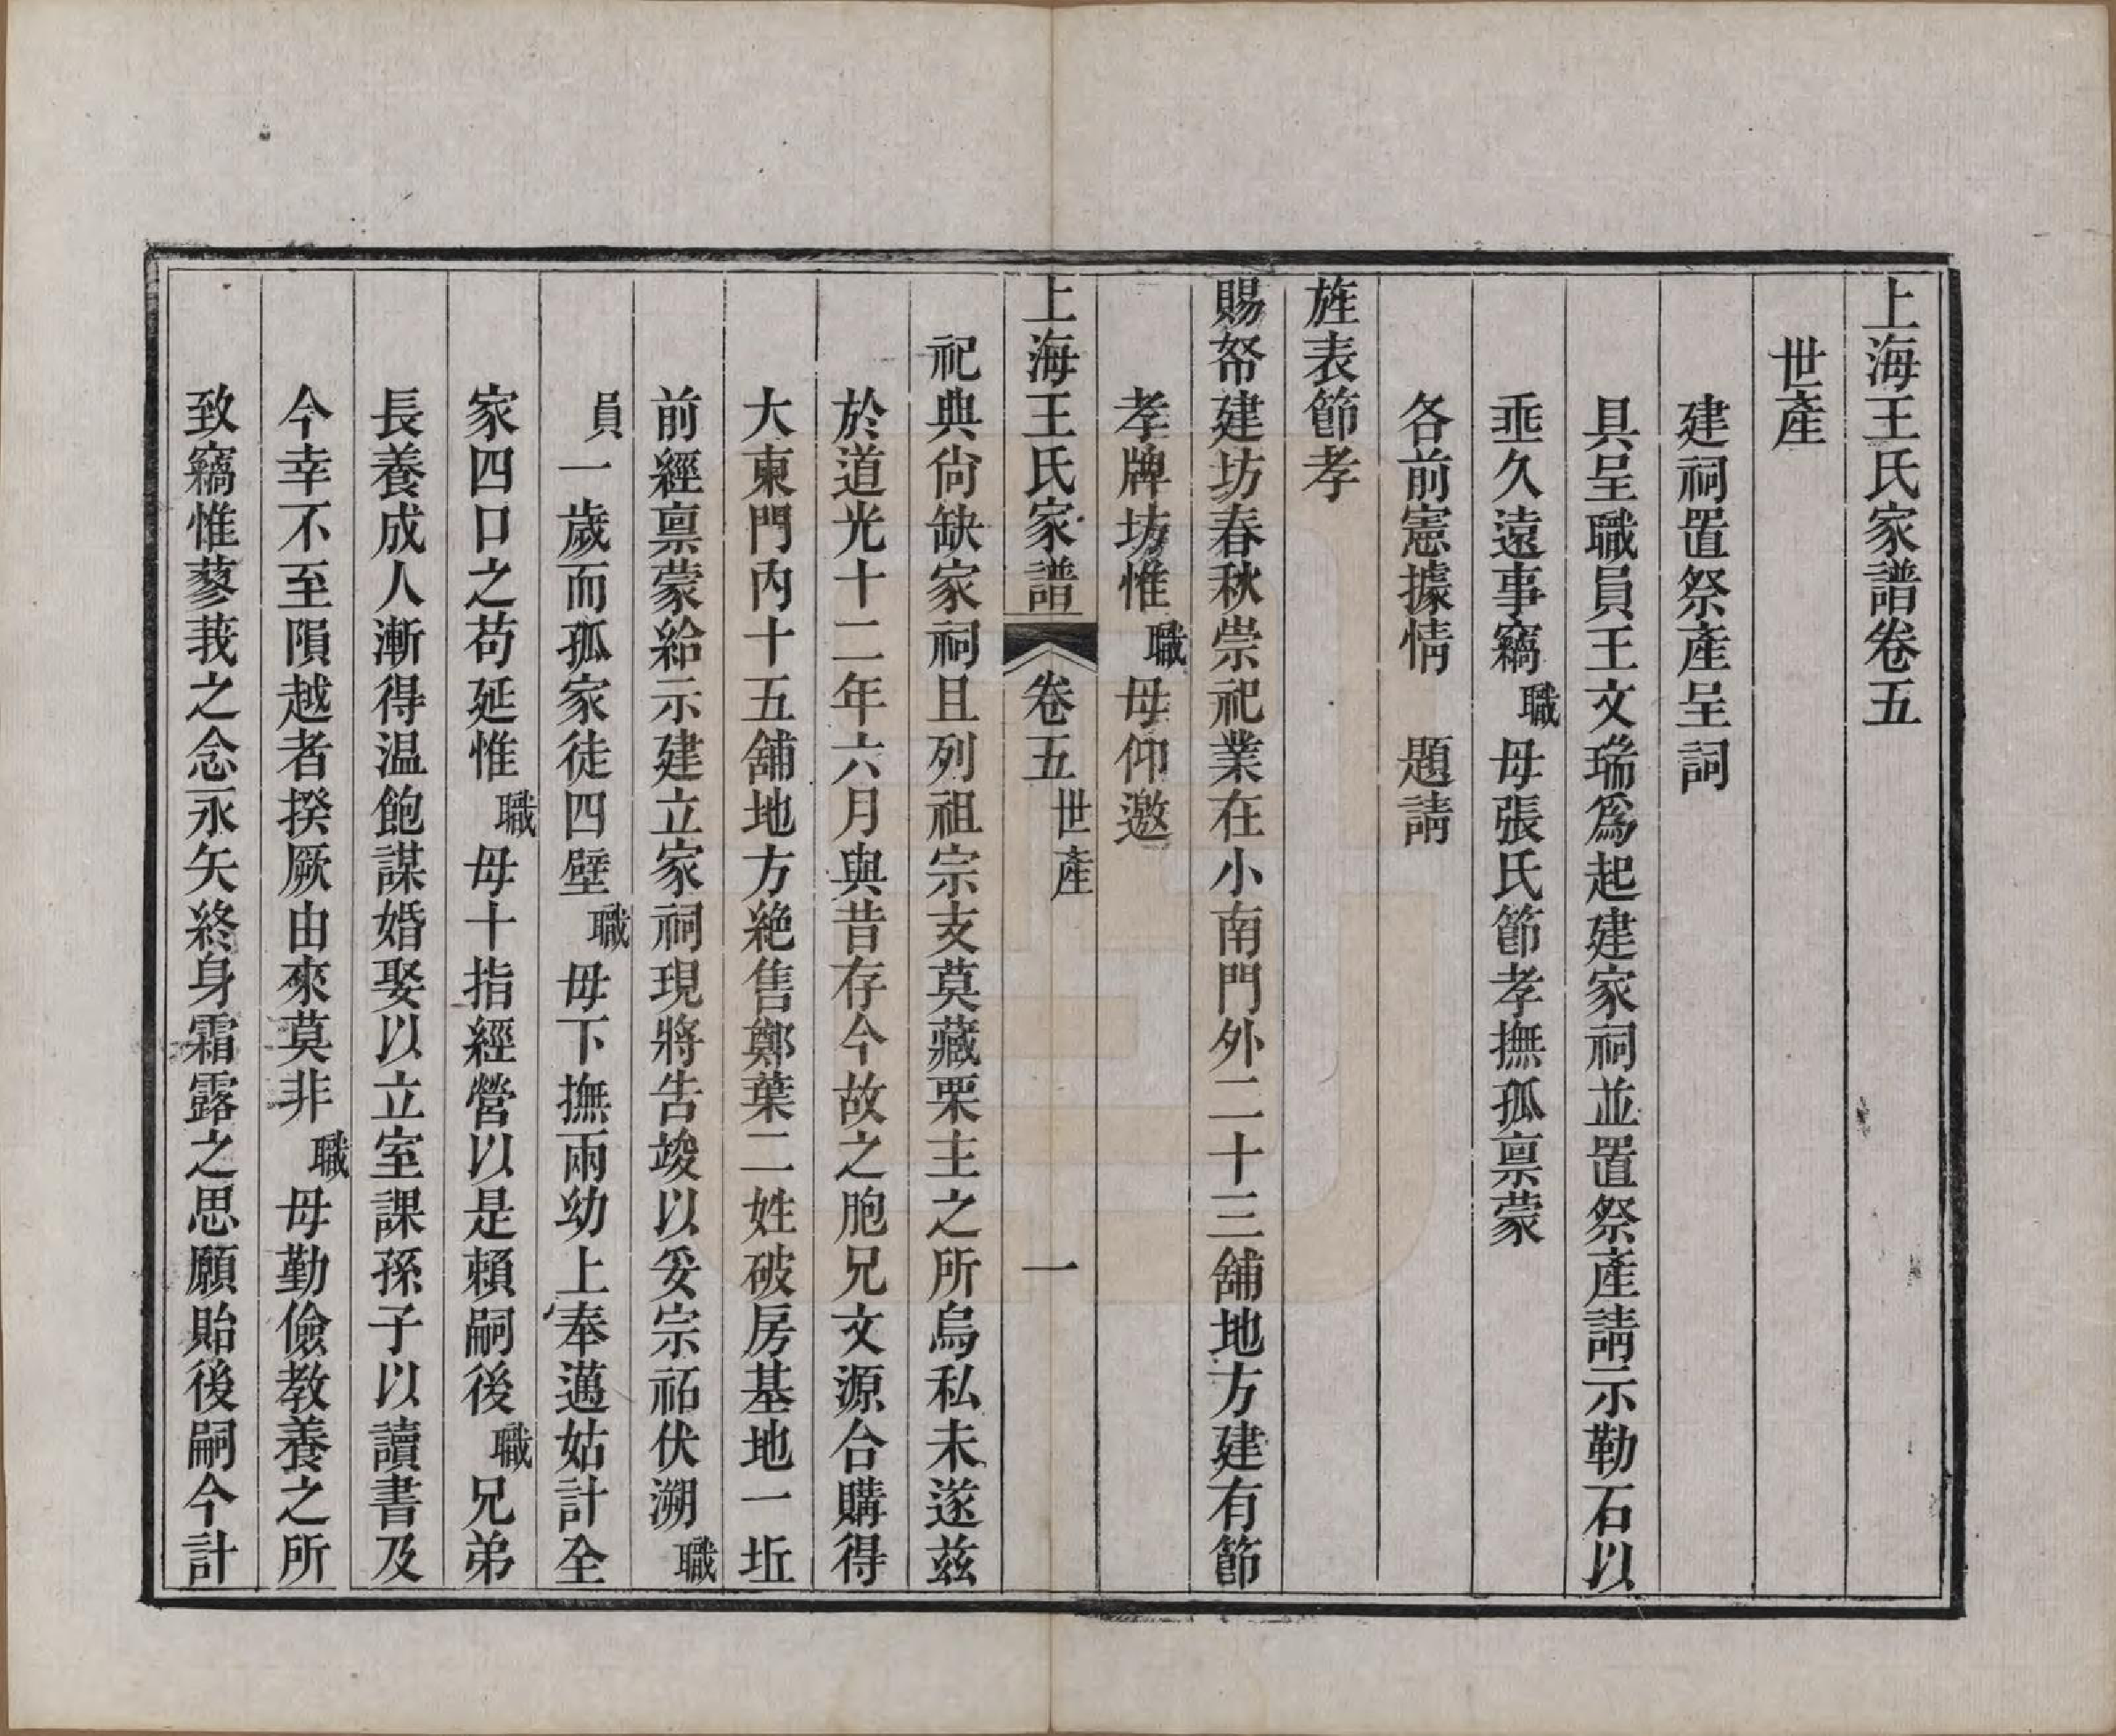 上海王氏家譜卷五
世產
建祠置祭產呈詞
具呈職員王文瑞爲起建家祠並置祭產請示勒石以
垂久遠事竊職母張氏節孝撫孤禀蒙
各前憲據情　題請
旌表節孝
賜帑建坊春秋崇祀業在小南門外二十三舖地方建有節
孝牌坊惟職母仰邀
上海王氏家譜　卷五　世產　一
祀典尙缺家祠且列祖宗支莫藏栗主之所烏私未遂兹
於道光十二年六月與昔存今故之胞兄文源合購得
大東門內十五舖地方絶售鄭葉二姓破房基地一坵
前經禀蒙給示建立家祠現將告竣以妥宗祏伏溯職
員一歲而孤家徒四壁職母下撫兩幼上奉邁姑計全
家四口之苟延惟職母十指經營以是賴嗣後職兄弟
長養成人漸得温飽謀婚娶以立室課孫子以讀書及
今幸不至隕越者揆厥由來莫非職母勤儉教養之所
致竊惟蓼莪之念永矢終身霜露之思願貽後嗣今計